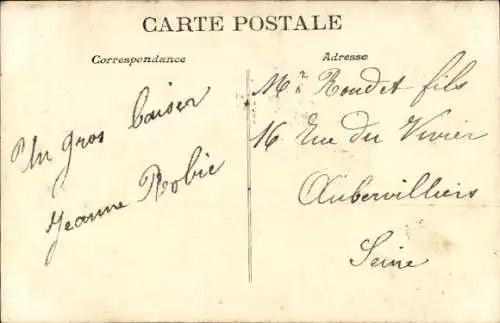 CARTE POSTALE
Correspondance
Un gros baiser
Jeanne Robic
Adresse
Mr Roudet fils
16 Rue du Vivier
Aubervilliers
Seine